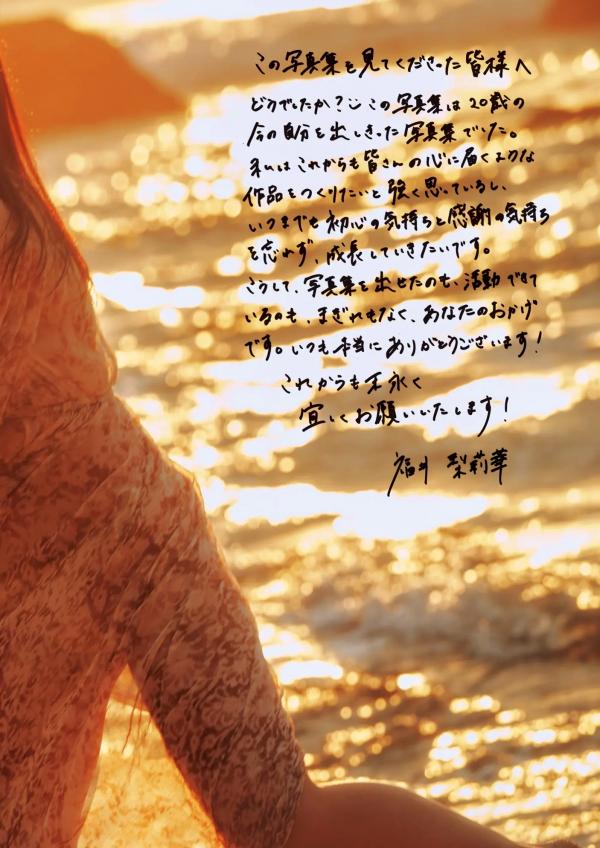 この写真集を見てくださった皆様へ
どうでしたか？この写真集は20歳の
今の自分を出しきった写真集でした。
私はこれからも皆さんの心に届くような
作品をつくりたいと強く思っているし、
いつまでも初心の気持ちと感謝の気持ち
を忘れず、成長していきたいです。
こうして、写真集を出せたのも、活動できて
いるのも、まぎれもなく、あなたのおかげ
です。いつも本当にありがとうございます！
これからも末永く
宜しくお願いいたします！
福井 梨莉華